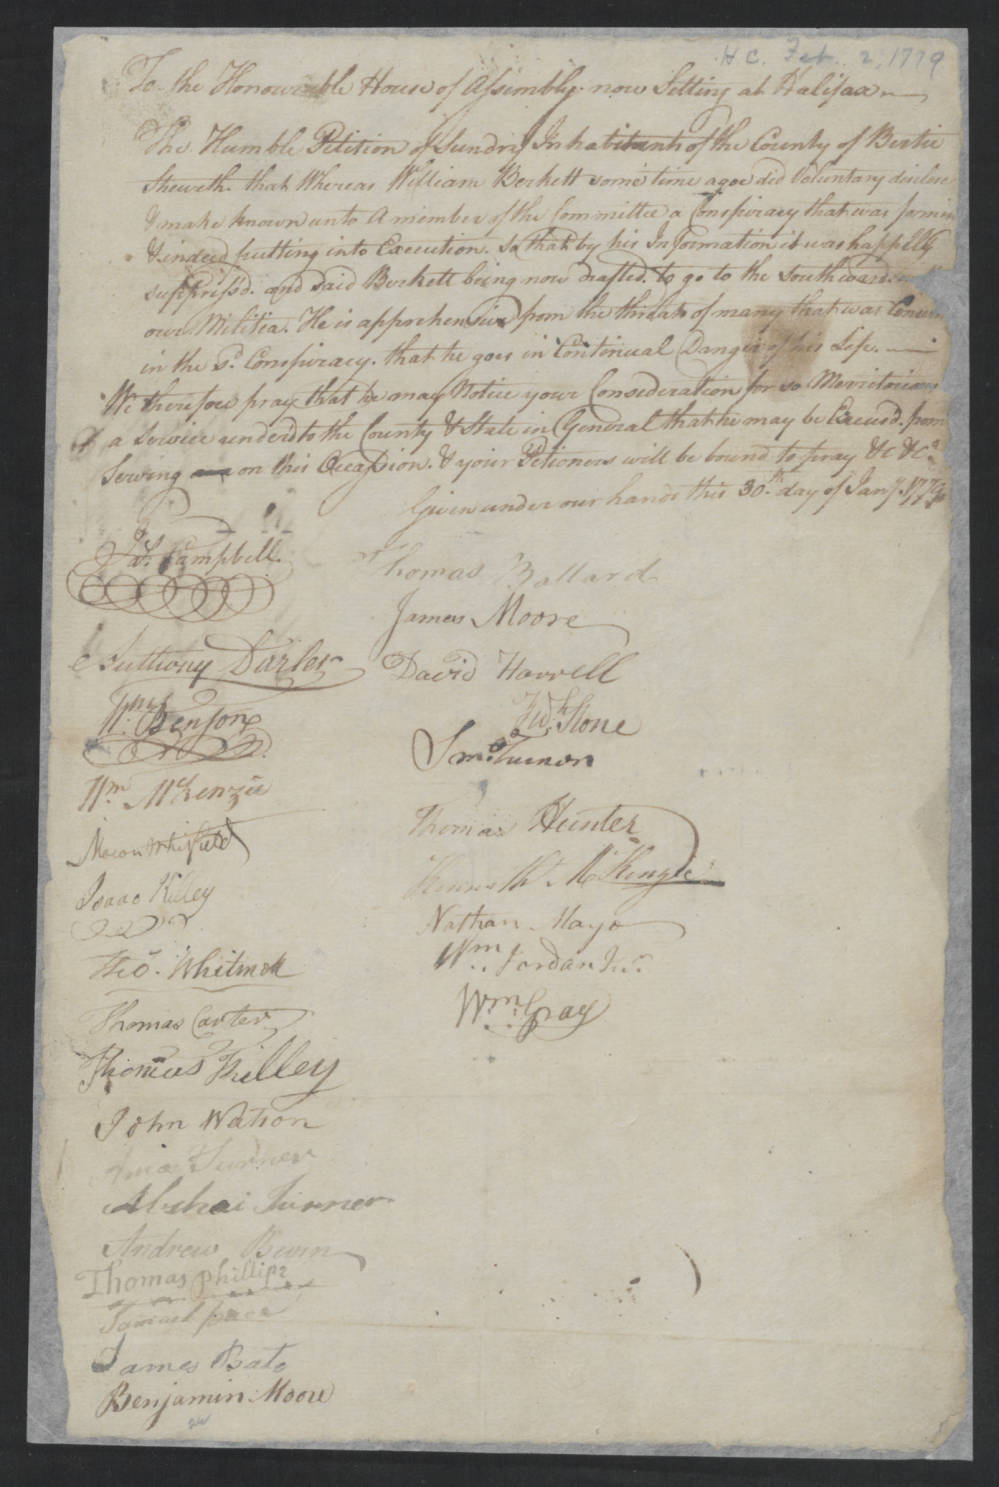 H C. Feb. 2, 1779
To the Honourable House of Assembly now Sitting at Halifax
The Humble Petition of Sundry Inhabitants of the County of Bertie
Sheweth. that Whereas William Berkett some time agoe did Voluntary disclose
& make known unto A member of the Committee a Conspiracy that was formin
& indeed putting into Execution. so that by his Information it was happily
suppress'd. and Said Berkett being now drafted. to go to the Southward
our Militia. He is apprehensive from the threats of many that was Concern
in the Sd. Conspiracy. that he goes in Continual Danger of his Life.
We therefore pray that he may Notice your Consideration for so Meritorious
a Service underd to the County & State in General that he may be Excusd. from
Serving on this Occasion. & your Petioners will be bound to pray &c &ca
Given under our hands this 30th. day of Jany. 1779
Jas. Campbell.
Thomas Ballard
James Moore
Anthony
David Harrell
Wm. Benson
Stone
Wm. McKenzie
Thomas Hunter
Whitfield
Kenneth McKenzie
Isaac Killey
Nathan Mayo
Wm. Jordan
Thos. Whitmell
Wm. Gray
Thomas Carter
Thomas Killey
John Watson
Turner
Abishai Turner
Andrew
Thomas phillips
Samuel
James Bate
Benjamin Moore